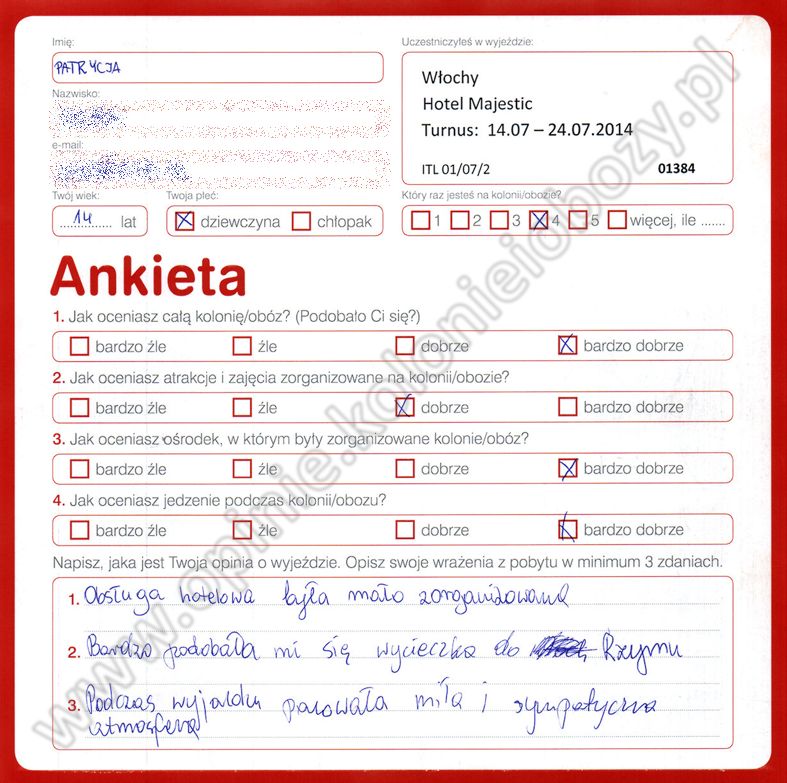 Imię:
PATRYCJA
Nazwisko:
e-mail:
Twój wiek:
14 lat
Twoja płeć:
dziewczyna chłopak
Uczestniczyłeś w wyjeździe:
Włochy
Hotel Majestic
Turnus: 14.07 – 24.07.2014
ITL 01/07/2 01384
Który raz jesteś na kolonii/obozie?
1 2 3 4 5 więcej, ile .......
Ankieta
1. Jak oceniasz całą kolonię/obóz? (Podobało Ci się?)
bardzo źle źle dobrze bardzo dobrze
2. Jak oceniasz atrakcje i zajęcia zorganizowane na kolonii/obozie?
bardzo źle źle dobrze bardzo dobrze
3. Jak oceniasz ośrodek, w którym były zorganizowane kolonie/obóz?
bardzo źle źle dobrze bardzo dobrze
4. Jak oceniasz jedzenie podczas kolonii/obozu?
bardzo źle źle dobrze bardzo dobrze
Napisz, jaka jest Twoja opinia o wyjeździe. Opisz swoje wrażenia z pobytu w minimum 3 zdaniach.
1. Obsługa hotelowa była mało zorganizowana
2. Bardzo podobała mi się wycieczka do Rzymu
3. Podczas wyjazdu panowała miła i sympatyczna
atmosfera
www.opinie.kolonieiobozy.pl